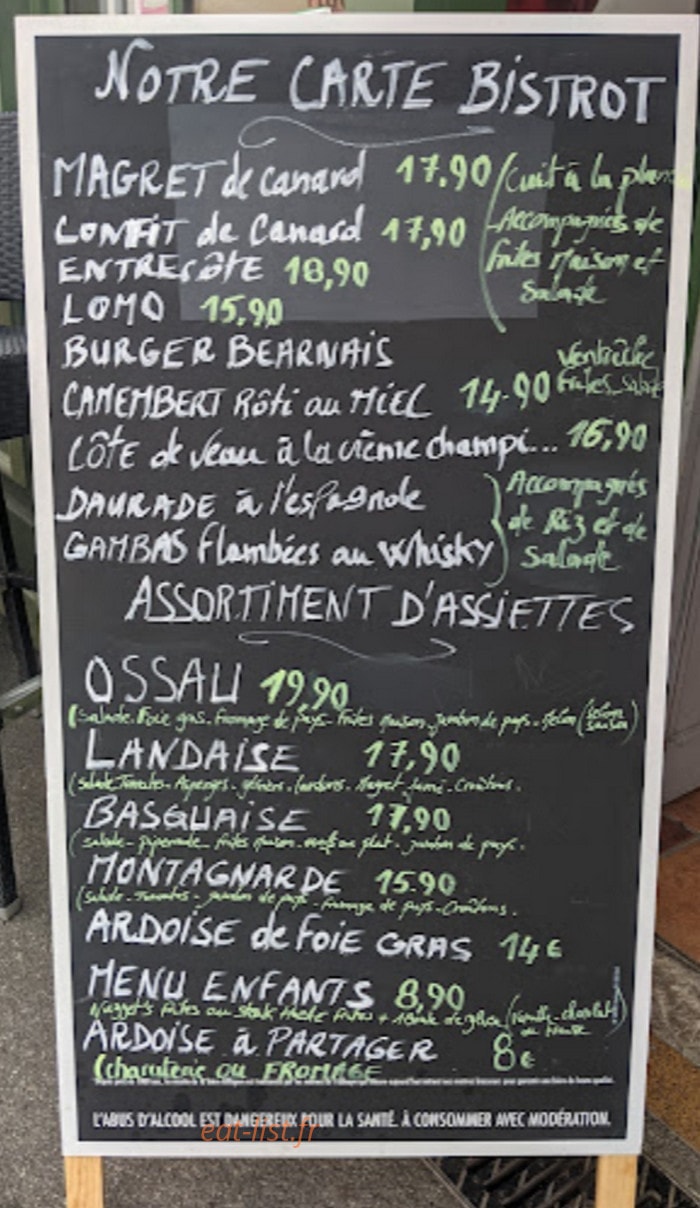 NOTRE CARTE BISTROT
MAGRET de canard 17,90 (Cuit à la
CONFIT de Canard 17,90 Accompagnés de
ENTRECÔTE 18,90 frites Maison et
LOMO 15,90 Salade
BURGER BEARNAIS Ventrèche
CAMEMBERT Rôti au MIEL 14-90 frites, salade
CÔTE de veau à la crème champi... 16,90
DAURADE à l'espagnole } Accompagnés
GAMBAS flambées au Whisky de Riz et de
Salade
ASSORTIMENT D'ASSIETTES
OSSAU 19,90
(Salade. Foie gras. Fromage de pays. Frites maison. jambon de pays. Melon (selon saison)
LANDAISE 17,90
(Salade, Tomates - Asperges - gésiers. lardons. Magret fumé - Croûtons.
BASQUAISE 17,90
(salade - piperade - frites maison. oeufs au plat - jambon de pays.
MONTAGNARDE 15.90
(salade - Tomates - jambon de pays - fromage de pays - Croûtons.
ARDOISE de FOIE GRAS 14€
MENU ENFANTS 8,90
Nuggets frites ou steak haché frites + 1 boule de glace (vanille - chocolat
ou fraise)
ARDOISE à PARTAGER 8€
(charcuterie ou FROMAGE
L'ABUS D'ALCOOL EST DANGEREUX POUR LA SANTÉ. À CONSOMMER AVEC MODÉRATION.
eat-list.fr